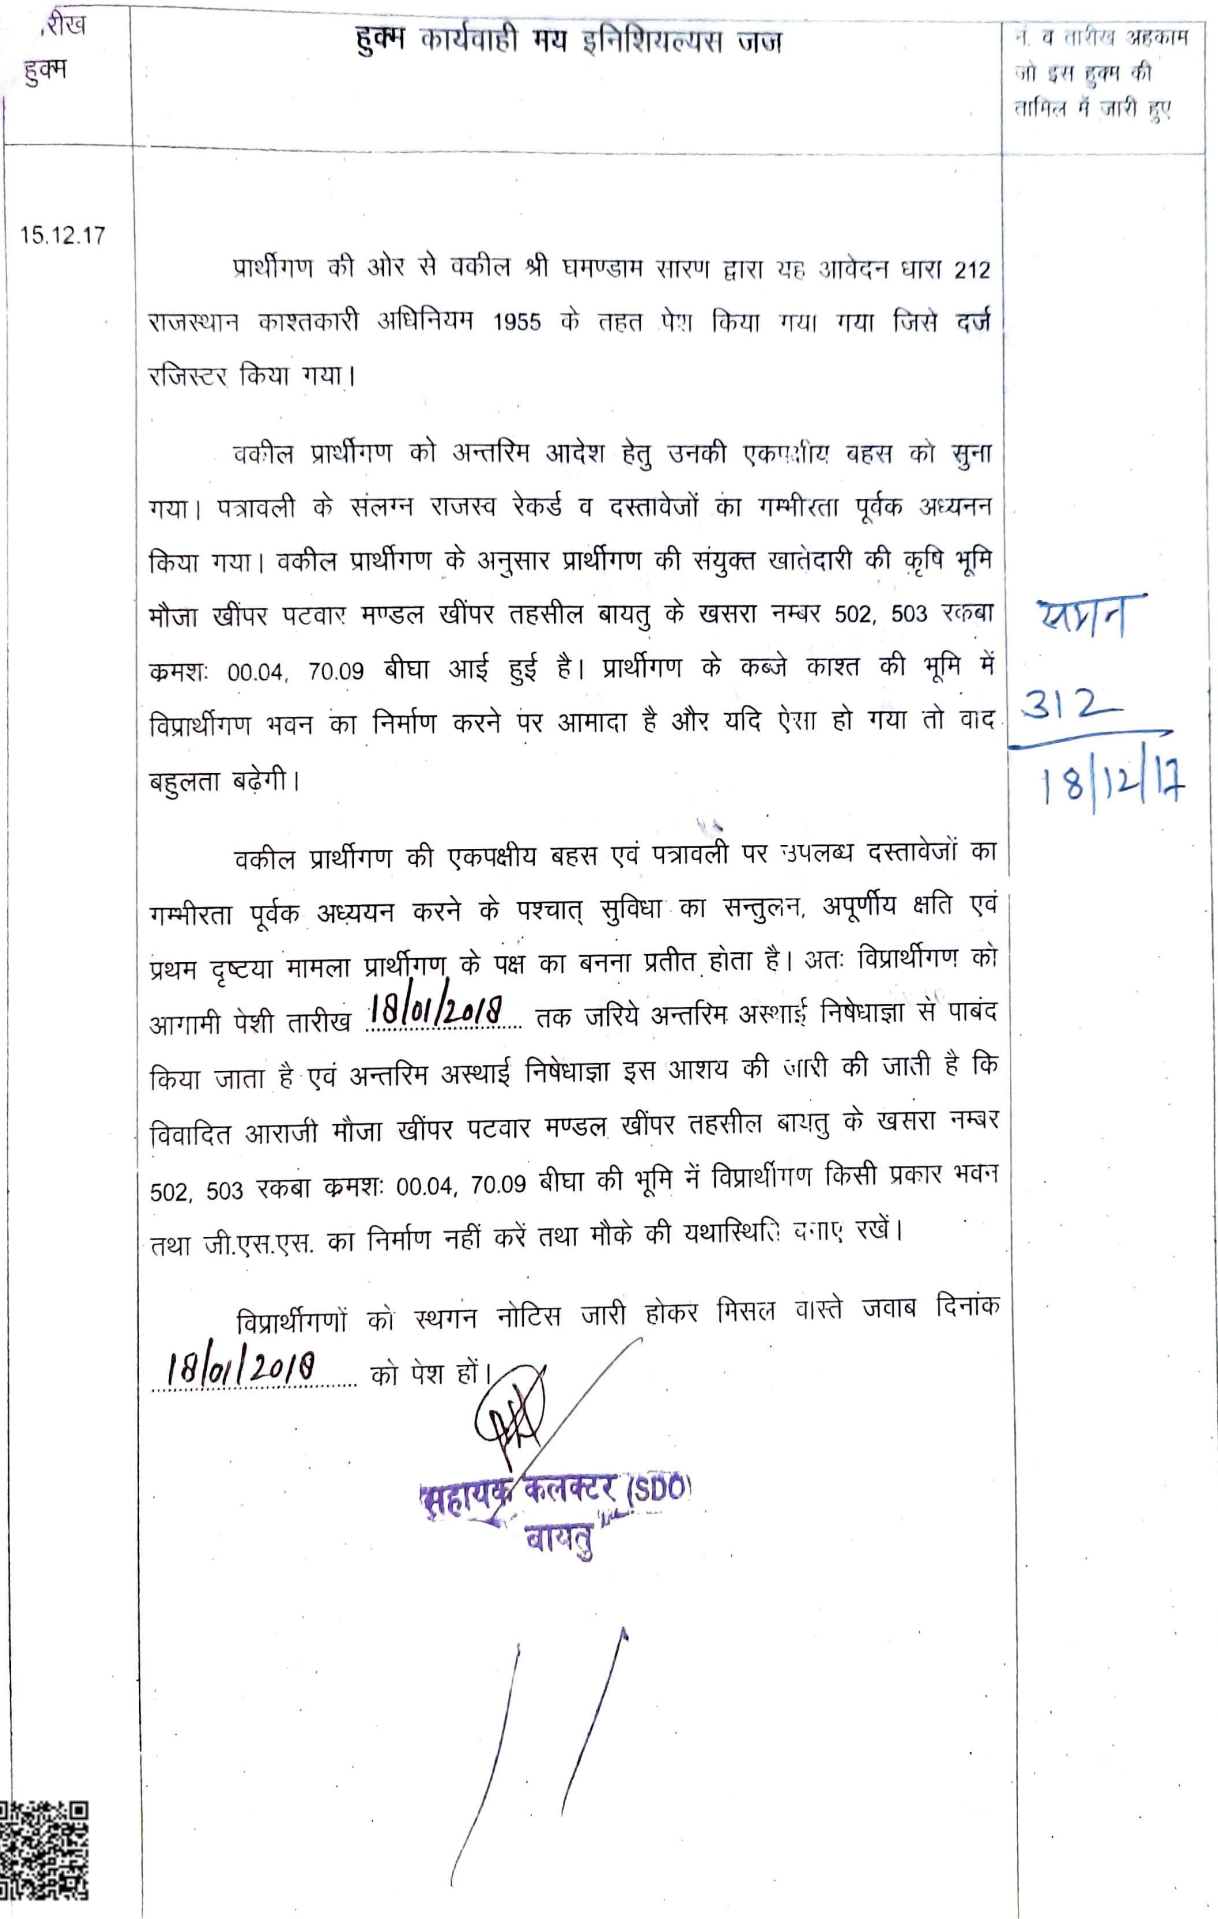 रीख
हुक्म
हुक्म कार्यवाही मय इनिशियल्यस जज
नं. व तारीख अहकाम
जो इस हुक्म की
तामिल में जारी हुए
15.12.17
प्रार्थीगण की ओर से वकील श्री घमण्डाम सारण द्वारा यह आवेदन धारा 212
राजस्थान काश्तकारी अधिनियम 1955 के तहत पेश किया गया गया जिसे दर्ज
रजिस्टर किया गया।
वकील प्रार्थीगण को अन्तरिम आदेश हेतु उनकी एकपक्षीय बहस को सुना
गया। पत्रावली के संलग्न राजस्व रेकर्ड व दस्तावेजों का गम्भीरता पूर्वक अध्यनन
किया गया। वकील प्रार्थीगण के अनुसार प्रार्थीगण की संयुक्त खातेदारी की कृषि भूमि
मौजा खींपर पटवार मण्डल खींपर तहसील बायतु के खसरा नम्बर 502, 503 रकबा
क्रमशः 00.04, 70.09 बीघा आई हुई है। प्रार्थीगण के कब्जे काश्त की भूमि में
विप्रार्थीगण भवन का निर्माण करने पर आमादा है और यदि ऐसा हो गया तो वाद
बहुलता बढ़ेगी।
समन
312
18/12/17
वकील प्रार्थीगण की एकपक्षीय बहस एवं पत्रावली पर उपलब्ध दस्तावेजों का
गम्भीरता पूर्वक अध्ययन करने के पश्चात् सुविधा का सन्तुलन, अपूर्णीय क्षति एवं
प्रथम दृष्टया मामला प्रार्थीगण के पक्ष का बनना प्रतीत होता है। अतः विप्रार्थीगण को
आगामी पेशी तारीख 18/01/2018 तक जरिये अन्तरिम अस्थाई निषेधाज्ञा से पाबंद
किया जाता है एवं अन्तरिम अस्थाई निषेधाज्ञा इस आशय की जारी की जाती है कि
विवादित आराजी मौजा खींपर पटवार मण्डल खींपर तहसील बायतु के खसरा नम्बर
502, 503 रकबा क्रमशः 00.04, 70.09 बीघा की भूमि में विप्रार्थीगण किसी प्रकार भवन
तथा जी.एस.एस. का निर्माण नहीं करें तथा मौके की यथास्थिति बनाए रखें।
विप्रार्थीगणों को स्थगन नोटिस जारी होकर मिसल वास्ते जवाब दिनांक
18/01/2018 को पेश हों।
सहायक कलक्टर (SDO)
बायतु